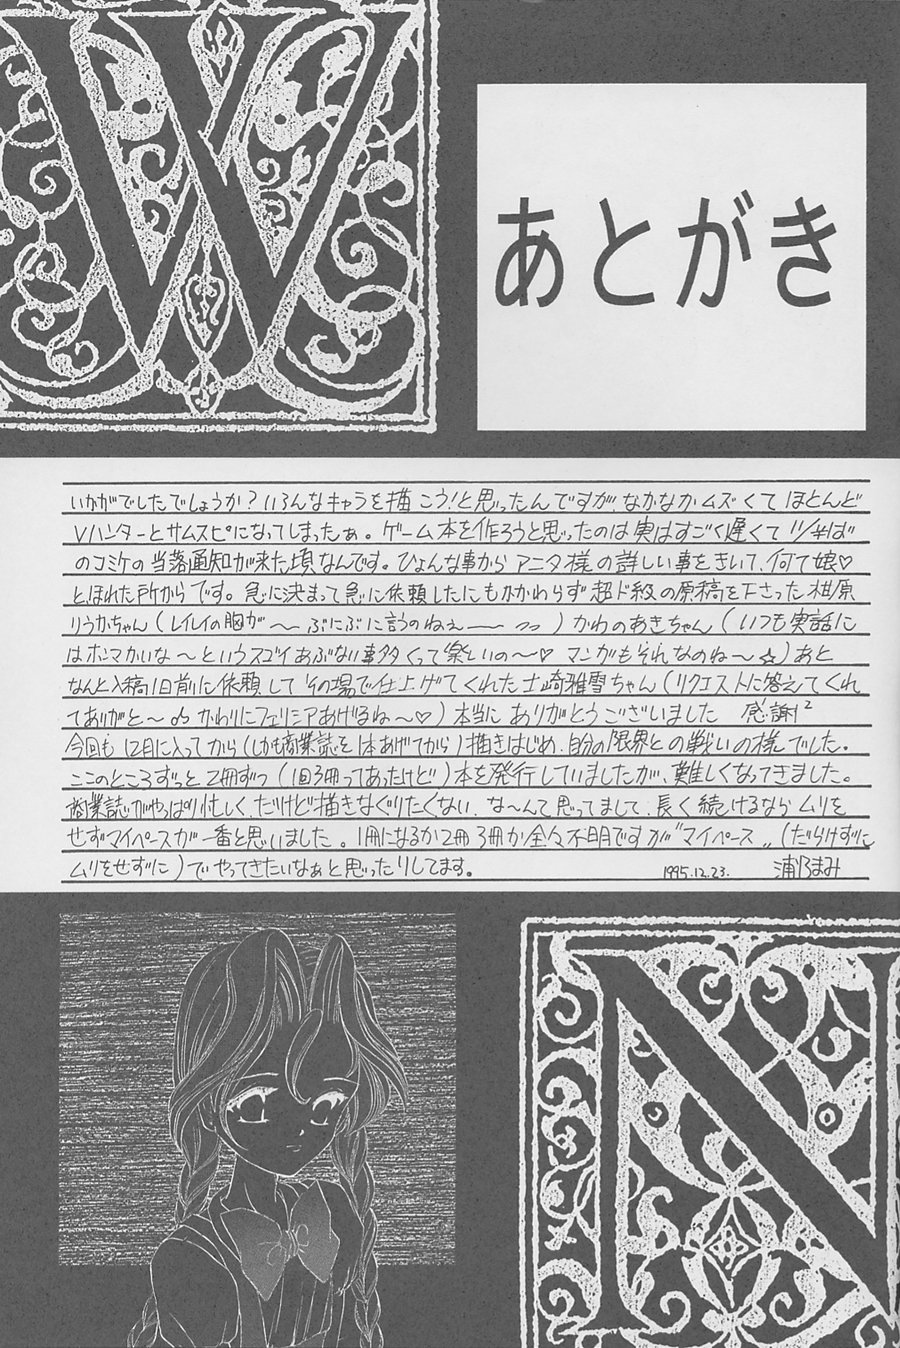 W
あとがき
いかがでしたでしょうか?いろんなキャラを描こう!と思ったんですがなかなかムズくてほとんど
Vハンターとサムスピになってしまったぁ。ゲーム本を作ろうと思ったのは実はすごく遅くて11/半ば
のコミケの当落通知が来た頃なんです。ひょんな事からアニタ様の詳しい事をきいて、何て娘♡
とほれた所からです。急に決まって急に依頼したにもかかわらず超ド級の原稿を下さった椹原
りうかちゃん(レイレイの胸が〜ぷにぷに言うのねぇ——)かわのあきちゃん(いつも実話に
はホンマかいな〜というスゴイあぶない事多くって楽しいの〜♡マンガもそれなのね〜☆)あと
なんと入稿1日前に依頼してその場で仕上げてくれた士崎雅雪ちゃん(リクエストに答えてくれ
てありがと〜♪かわりにフェリシアあげるね〜♡)本当にありがとうございました 感謝²
今回も12月に入ってから(しかも商業誌を1本あげてから)描きはじめ、自分の限界との戦いの様でした。
ここのところずっと2冊ずつ(1回3冊ってあったけど)本を発行していましたが、難しくなってきました。
商業誌がやっぱり忙しく、だけど描きなぐりたくない、な〜んて思ってまして、長く続けるならムリを
せずマイペースが一番と思いました。1冊になるか2冊3冊か全々不明ですが“マイペース„(だらけずに
ムリをせずに)でやってきたいなぁと思ったりしてます。 1995.12.23. 浦乃まみ
N